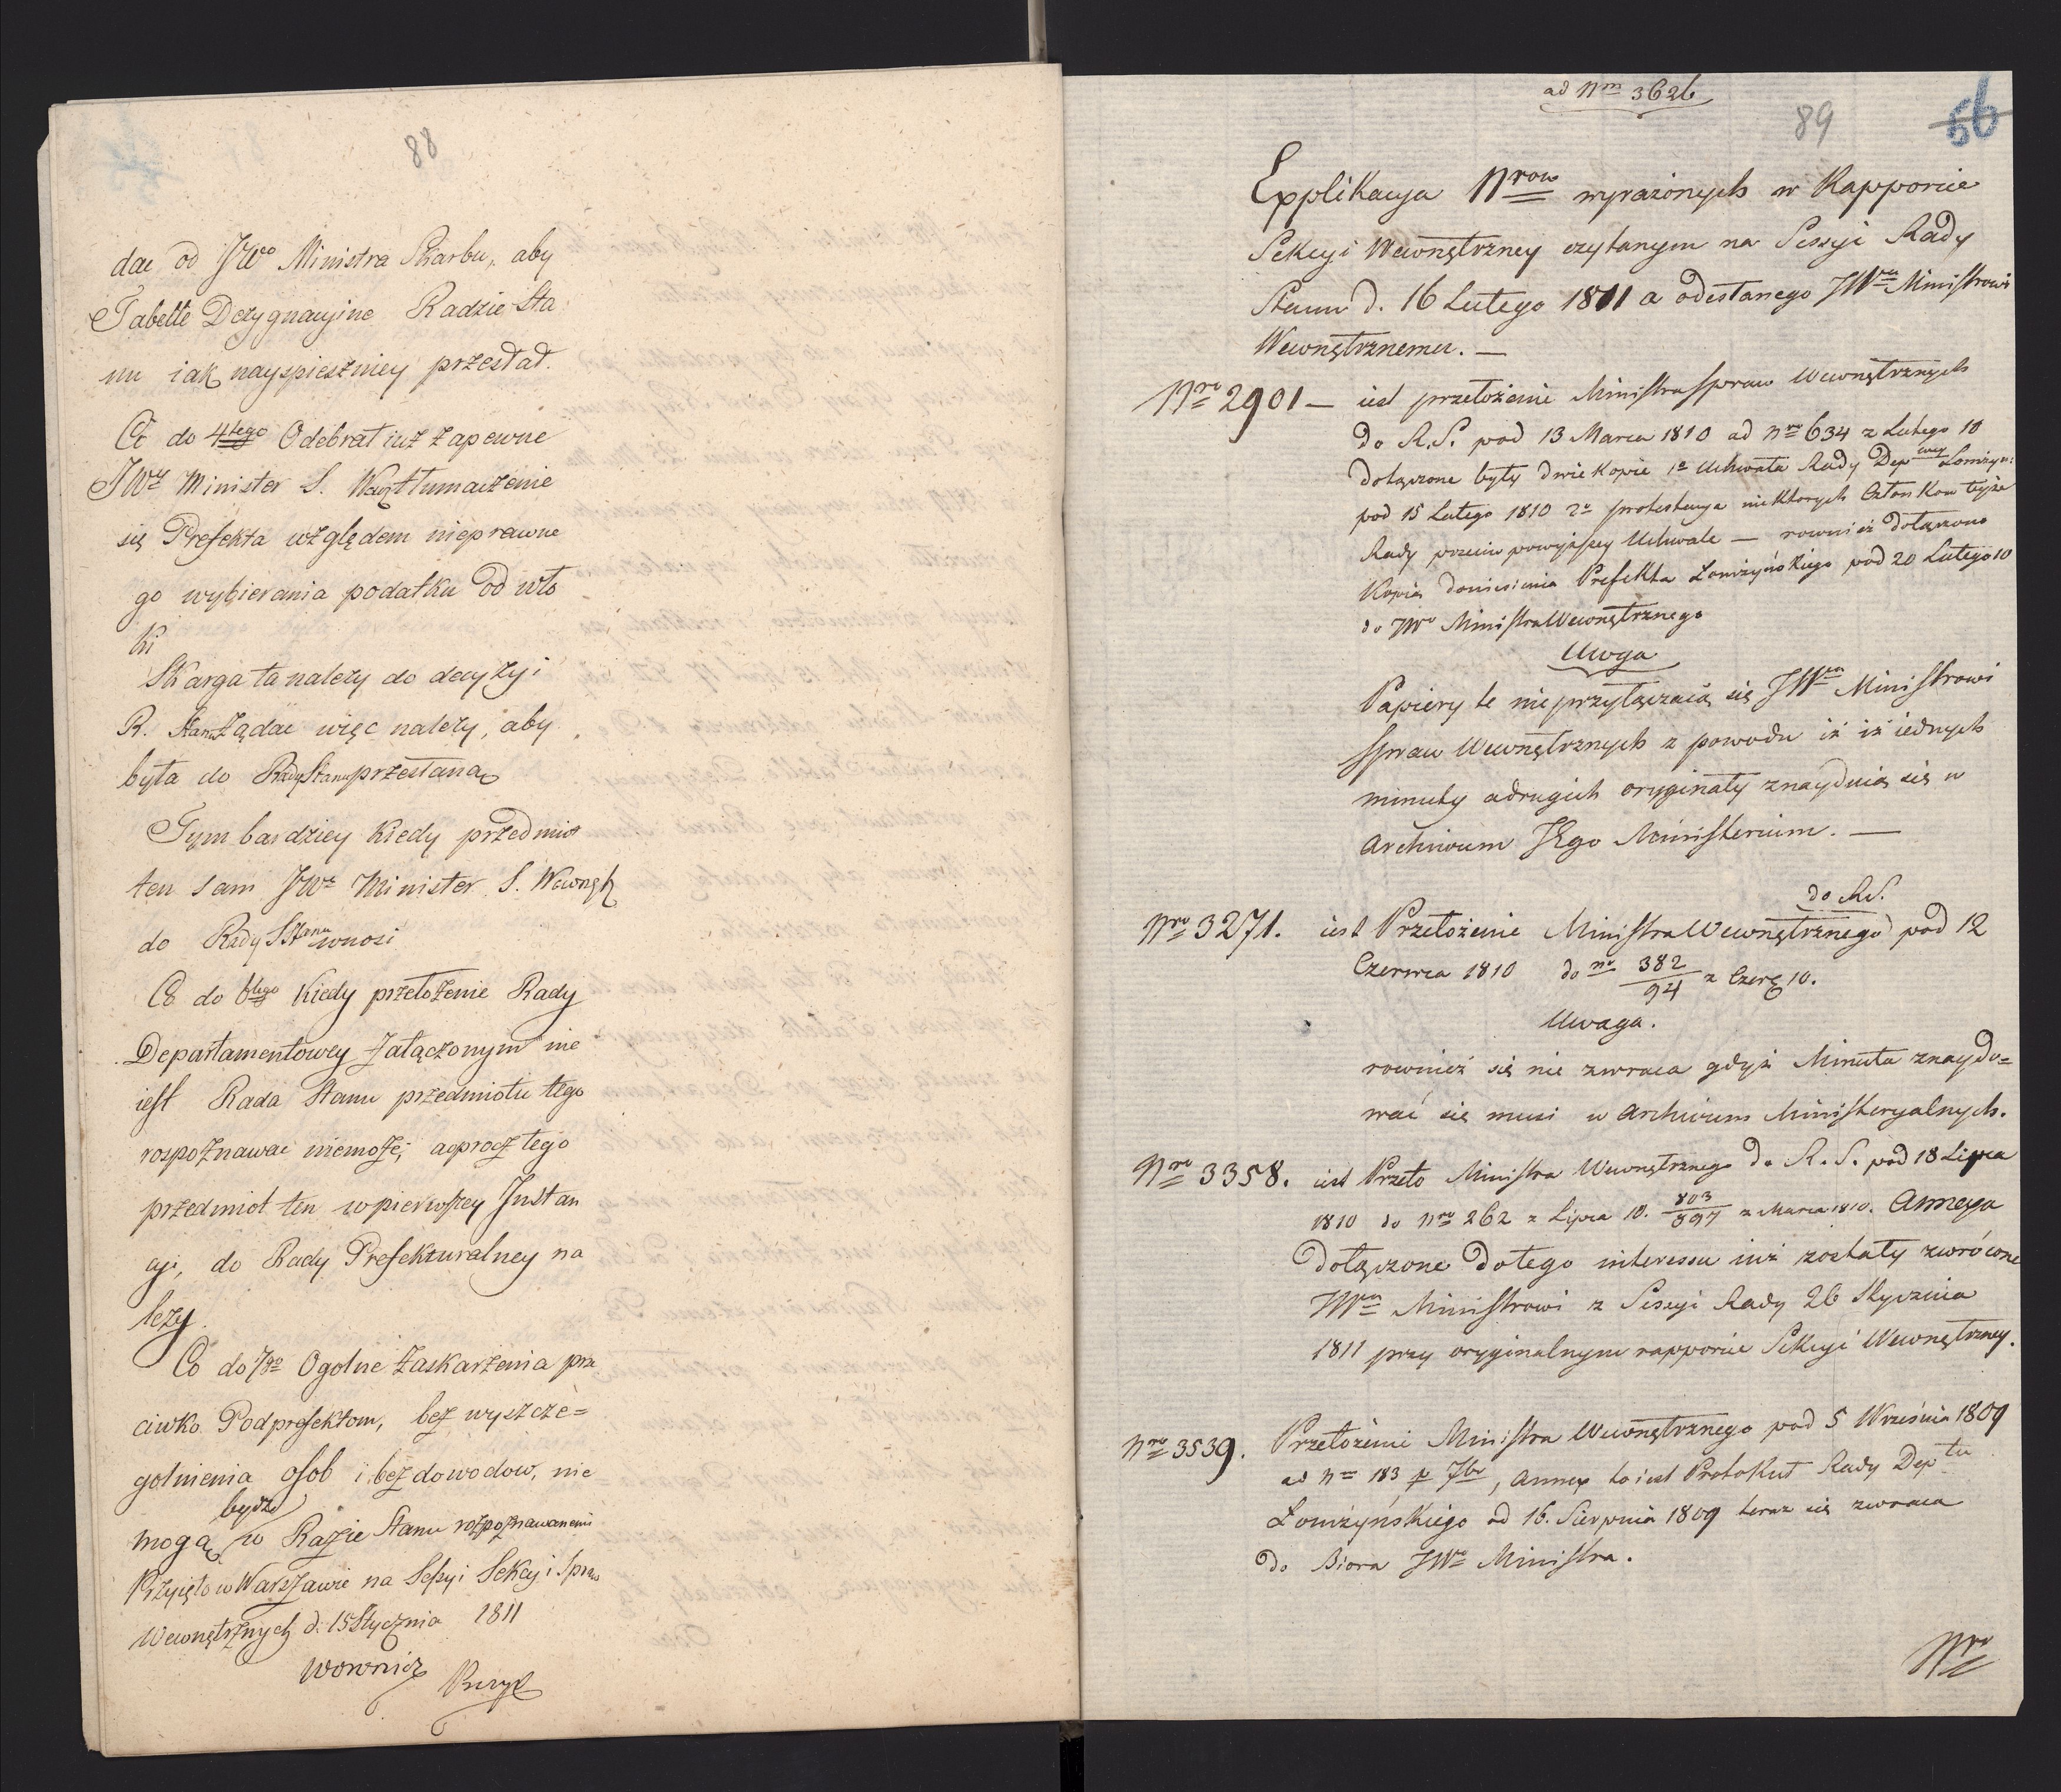 88
dac od JWo Ministra Skarbu, aby
Tabelle Dezygnacyine Radzie Sta
nu iak nayspieszniey przesłał.
Co do 4tego Odebrał iuż zapewne
JWy Minister S. Wew tłumaczenie
się Prefekta względem nieprawne
go wybierania podatku od wło
ki
Skarga ta należy do decyzyi
R. Stanu Żądac więc należy, aby
była do Rady Stanu przesłaną
Tym bardziey kiedy przedmiot
ten sam JWy Minister S. Wewnęt
do Rady Stanu wnosi
Co do 6tego Kiedy przełożenie Rady
Departamentowey załączonym nie
iest Rada Stanu przedmiotu tego
rospoznawac niemoże; a oprocz tego
przedmiot ten w pierwszey Instan
cyi, do Rady Prefekturalney na
leży.
Co do 7go Ogolne Zaskarżenia prze
ciwko Podprefektom, bez wyszcze=
golnienia osob i bez dowodow, nie
mogą bydź w Radzie Stanu rozpoznawanemi
Przyięto w Warszawie na Sessyi Sekcyi Spraw
Wewnętrznych d. 15 Stycznia 1811
Woronicz
ad Nm 3626
89
56
Explikacya Nrow wyrażonych w Rapporcie
Sekcyi Wewnętrzney czytanym na Sessyi Rady
Stanu d. 16 Lutego 1811 a odesłanego JWmu Ministrowi
Wewnętrznemu. —
Nro 2901 — iest przełożenie Ministra Spraw Wewnętrznych
do R.S. pod 13 Marca 1810 ad nro 634 z Lutego 10
dołączone były dwie kopie 1o Uchwała Rady Dep Łomżyn:
pod 15 Lutego 1810 2o protestacya niektorych Członkow teyże
Rady przeciw powyższey Uchwale — rownież dołączono
Kopią doniesienia Prefekta Łomżyńskiego pod 20 Lutego 10
do JWo Ministra Wewnętrznego
Uwaga
Papiery te nie przyłączaią się JWmu Ministrowi
Spraw Wewnętrznych z powodu iż iż iednych
minuty a drugich oryginały znayduią się w
Archiwum JEgo Ministerium. —
Nro 3271. iest Przełożenie Ministra Wewnętrznego do R.S. pod 12
Czerwca 1810 do nro 382/94 z Czerw 10.
Uwaga.
rownież się nie zwraca gdyż Minuta znaydo=
wać się musi w Archiwum Ministeryalnych.
Nro 3358. iest Przeło Ministra Wewnętrznego do R.S. pod 18 Lipca
1810 do nro 262 z Lipca 10. z Marca 1810. Annexa
dołączone do tego interessu iuż zostały zwrócone
JWmu Ministrowi z Sessyi Rady 26 Stycznia
1811 przy oryginalnym rapporcie Sekcyi Wewnętrzney.
Nro 3539. Przełożenie Ministra Wewnętrznego pod 5 Września 1809
ad n 183 p 7br, annex to iest Protokuł Rady Deptu
Łomżyńskiego od 16. Sierpnia 1809 teraz się zwraca
do Biora JWo Ministra.
Nro